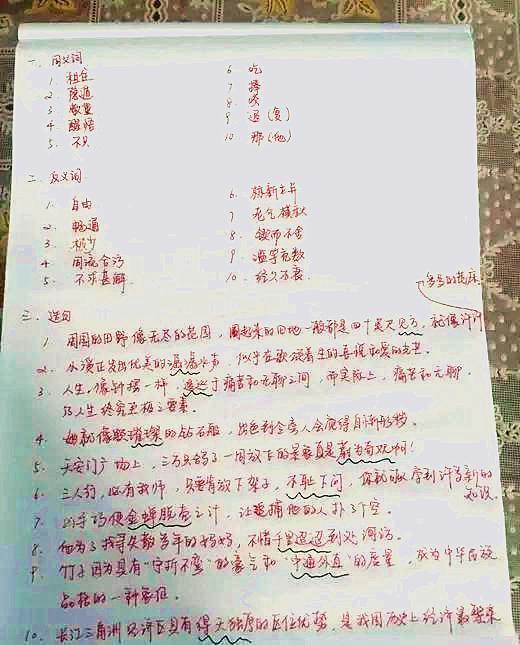 一. 同义词
1. 租住
2. 隧道
3. 数量
4. 醒悟
5. 不只
6 吃
7 捧
8 咬
9 还(复)
10 那(他)
二. 反义词
1. 自由
2. 畅通
3. 稀少
4 同流合污
5 不求甚解
6. 标新立异
7 老气横秋
8. 锲而不舍
9. 滥竽充数
10. 经久不衰
三. 造句
多多的花床
1. 周围的田野像无尽的花园,圈起来的田地一般都是四十英尺见方,就像许许
2. 小溪正发出优美的潺潺水声,似乎在歌
3. 人生,像钟摆一样,
于痛苦和无聊之间,而实际上,痛苦和无聊
乃人生终究至极之要素。
4. 她就像颗璀璨的钻石般,出色到令旁人会觉得自惭形秽。
5. 天安门广场上,三万只鸽子一同放飞的景象真是蔚为奇观啊!
6 三人行,必有我师,只要肯放下架子,不耻下问,你就可以学到许多新的
知识。
7. 凶手巧使金蝉脱壳之计,让追捕他的人扑了个空。
8. 他为了找寻失散多年的妈妈,不惜千里迢迢到处
9. 竹子因为具有"守折不挛"的豪气和"中通外直"的度量,成为中华民族
品格的一种象征。
10. 长江三角洲经济区具有得天独厚的区位优势,是我国历史上经济最发达